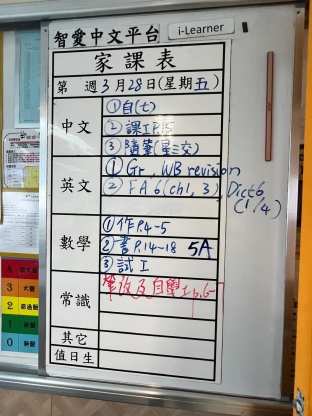 智愛中文平台
i-Learner
家課表
第 週 3月28日(星期五)
中文
①自(七)
②課I P.15
③隨筆(星三交)
英文
①Gr, WB revision
②FA 6(ch1, 3), Dict6
(1/4)
數學
①作P.4-5
②書P.14-18 5A
③試I
常識
其它
值日生
4
3
2
1
0